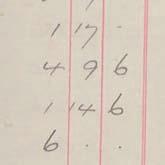 1 17 .
4 9 6
1 14 6
6 . .